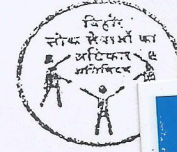 बिहार
लोक सेवाओं का
अधिकार
अधिनियम